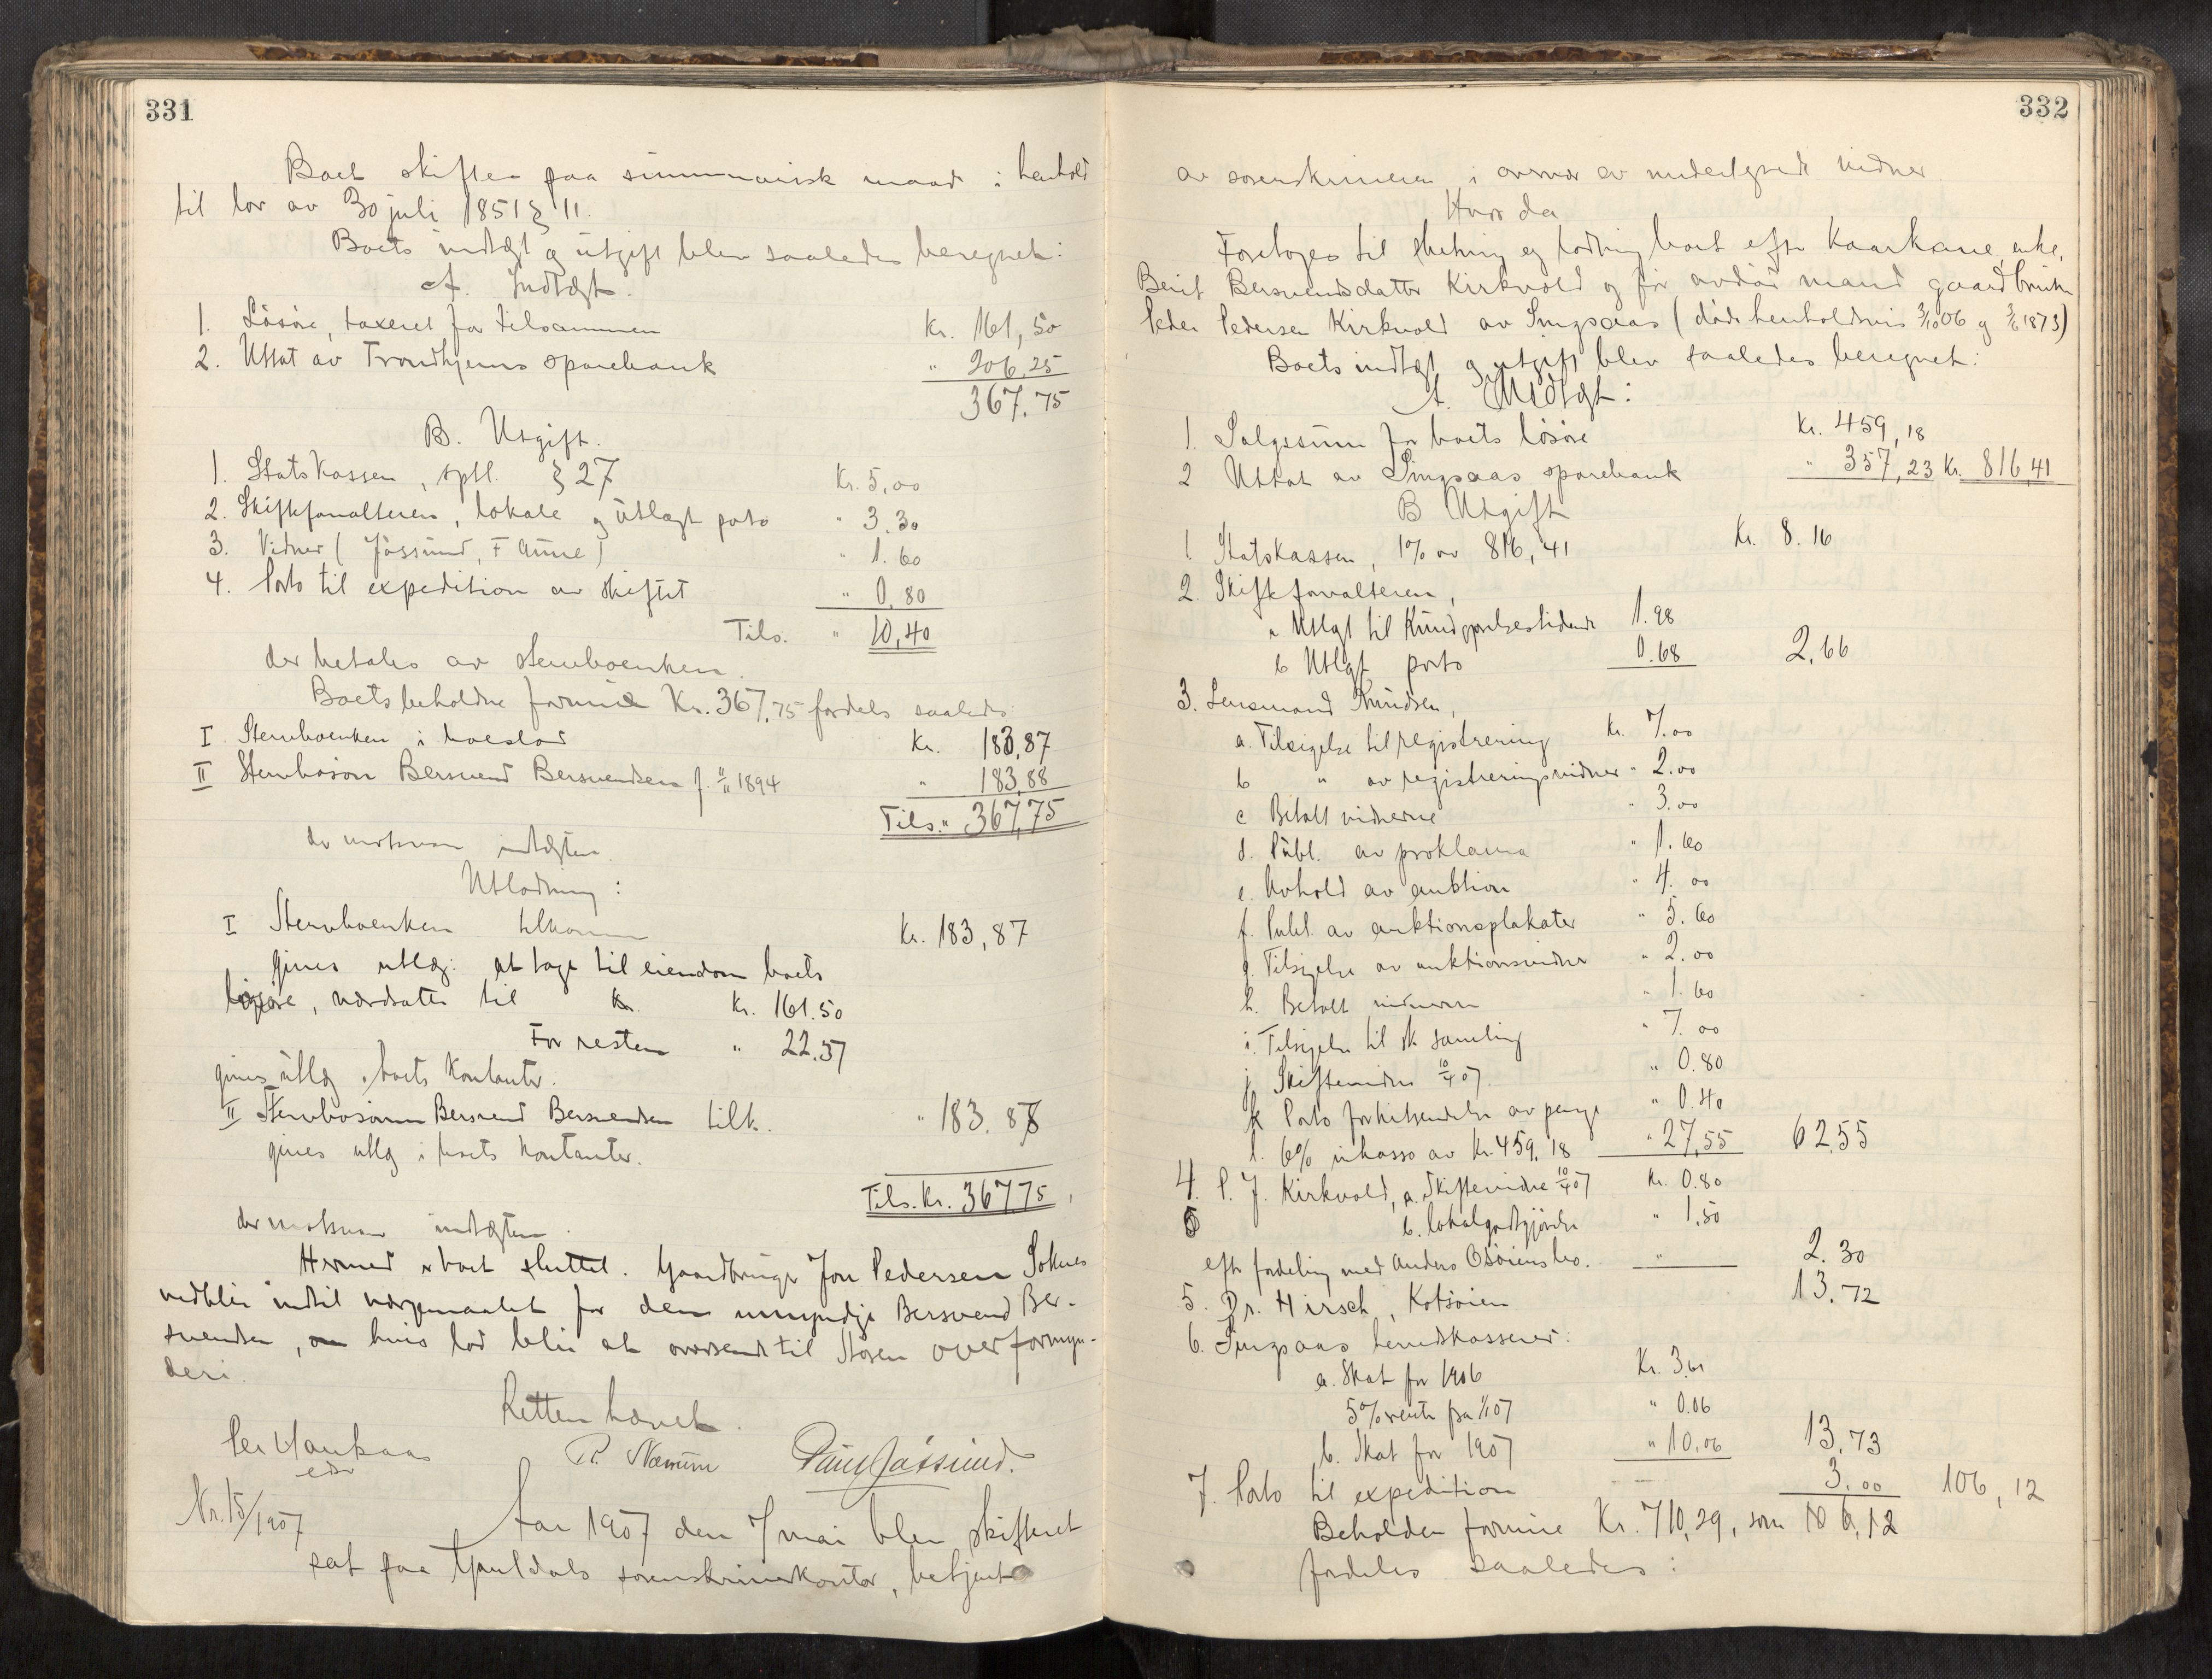 331
Boet skiftes paa summarisk maade i henhold
til lov av 30 juli 1851 § 11.
Boets indtægt og utgift blev saaledes beregnet:
A. Indtægt.
1. Løsøre, taxeret for tilsammen Kr. 161,50
2. Uttat av Trondhjems sparebank " 206,25
367,75
B. Utgift.
1. Statskassen, sptl. § 27 Kr. 5,00
2. Skifteforvalteren, lokale og utlagt porto " 3.30
3. Vidner (Jøssund, F Aune) " 1.60
4. Porto til expedition av skiftet " 0,80
Tils. " 10,40
der betales av stervboenken.
Boets beholdne formue Kr. 367,75 fordeles saaledes
I Stervboenken i boeslod Kr. 183,87
II Stervbosøn Bersvend Bersvendsen f. 11/11 1894 " 183,88
Tils. " 367,75
der motsvarer indtægten.
Utlodning:
I Stervboenken tilkommer Kr. 183,87
gives utlæg: at tage til eiendom boets
løsøre, værdsatte til Kr. Kr. 161.50
For resten " 22.37
gives utlæg i boets kontanter.
II Stervbosønnen Bersvend Bersvendsen tilk. " 183.88
gives utlæg i boets kontanter.
Tils. Kr. 367,75
der motsvarer indtægten.
Hermed er boet sluttet. Gaardbruger Jon Pedersen Soknes
vedblir indtil værgemaalet for den umyndige Bersvend Ber-
svendsen, hvis lod blir at oversende til Støren overformyn-
deri.
Retten hævet.
Per Haukaas P. Næsmm Paul Jøssund.
edsv
Nr. 15/1907
Aar 1907 den 7 mai blev skifteret
sat paa Guldals sorenskriverkontor, betjent
332
av sorenskriveren i overvær av undertegnede vidner
Hvor da
Foretoges til slutning og lodning boet efter kaarkone, enke,
Berit Bersvendsdatter Kirkvold og før avdød mand gaardbruker
Peder Pedersen Kirkvold av Singsaas (døde henholdsvis 3/10 06 og 3/6 1873)
Boets indtægt og utgift blev saaledes beregnet:
A. Indtægt:
1. Salgssum for boets løsøre Kr. 459,18
2 Uttat av Singsaas sparebank " 357,23 Kr. 816,41
B Utgift
1 Statskassen, 1% av 816,41 Kr. 8.16
2. Skifteforvalteren,
a Utlagt til Kundgjørelsestidende 1.98
b Utlagt porto 0.68 2,66
3. Lensmand Knudsen,
a. Tilsigelse til registrering Kr. 7.00
b " av registreringsvidner " 2.00
c Betalt vidnerne " 3.00
d. Publ. av proklama " 1.60
e. Avhold av auktion " 4.00
f. Publ. av auktionsplakater " 5.60
g. Tilsigelse av auktionsvidner " 2.00
h. Betalt vidnerne " 1.60
i. Tilsigelse til sk samling " 7.00
j. Skiftevidne 10/4 07. " 0.80
k Porto for hitsendelse av penge " 0.40
l. 6% inkasso av Kr. 459,18 " 27,55 62,55
4. P. J. Kirkvold, a. Skiftevidne 10/4 07 Kr. 0.80
b. lokalgodtgjørelse " 1,50
efter fordeling med Anders Osøiens bo. " 2.30
5. Dr. Hirsch, Kotsøien 13.72
6. Singsaas herredskasserer:
a. Skat for 1906 Kr. 3.61
5% rente fra 1/1 07 " 0.06
b. Skat for 1907 " 10,06 13,73
7. Porto til expedition 3.00 106,12
Beholden formue Kr. 710,29, som 106,12
fordeles saaledes: